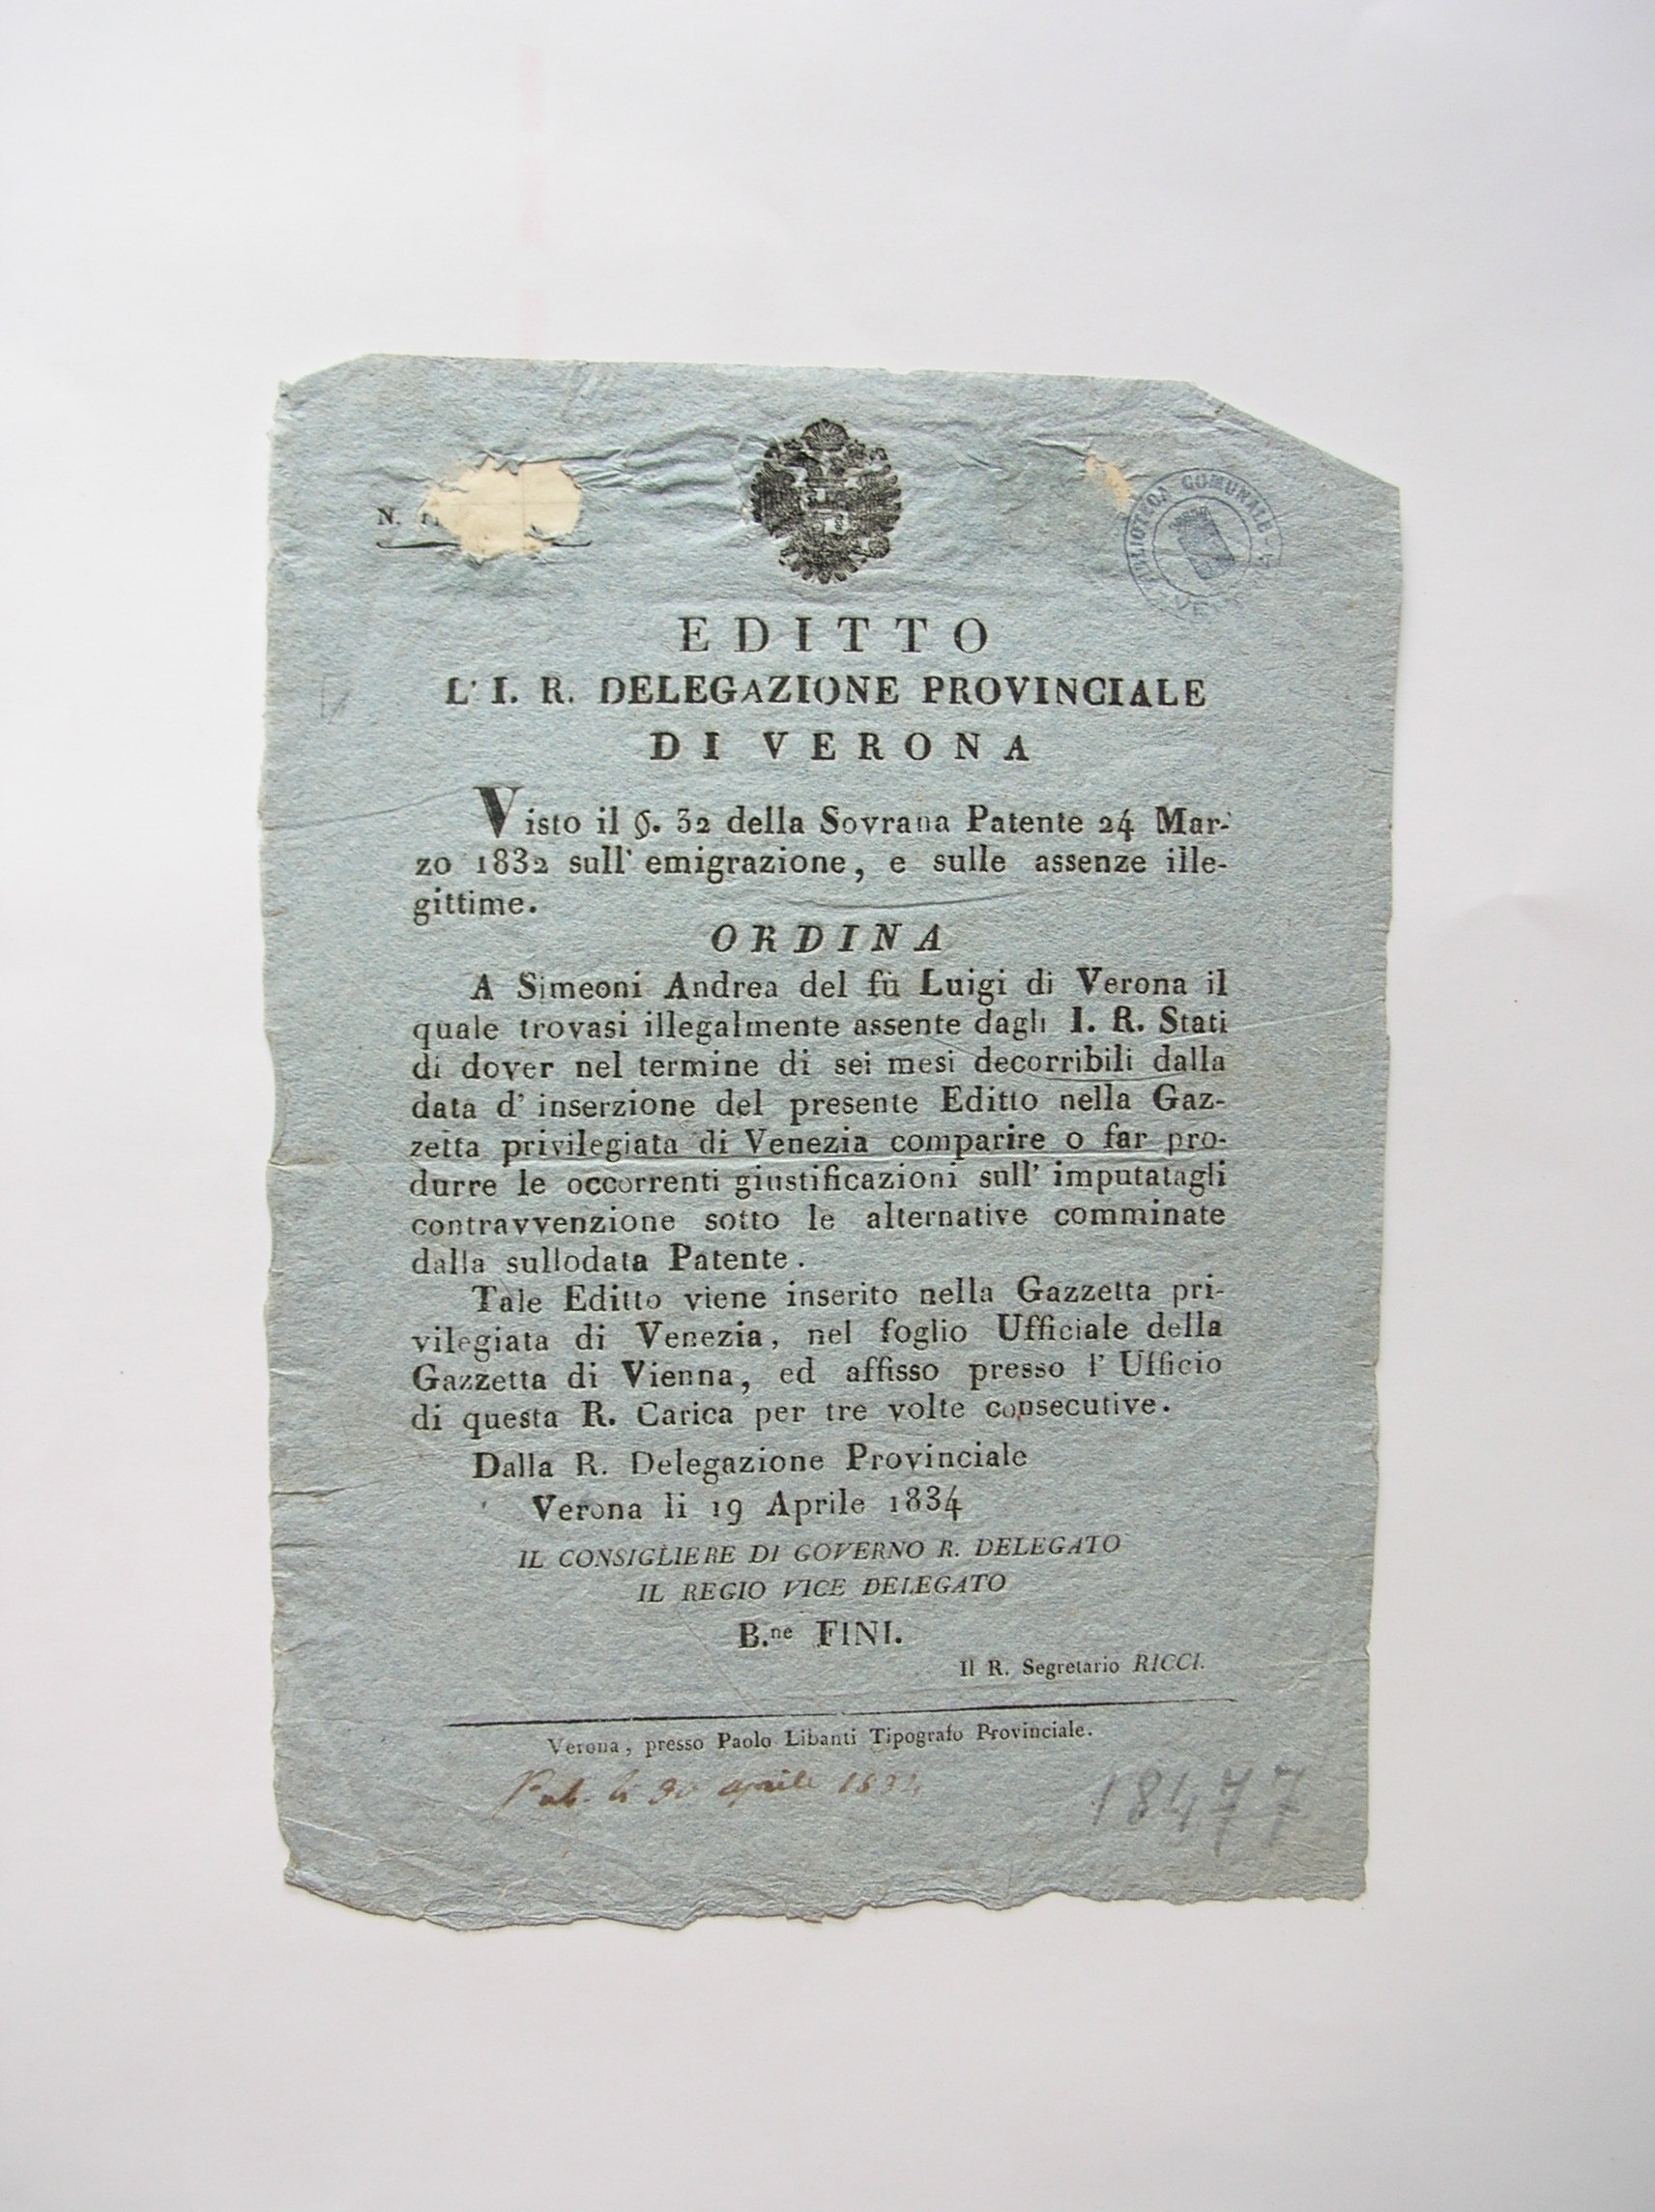 N.
BIBLIOTECA COMUNALE
EDITTO
L' I. R. DELEGAZIONE PROVINCIALE
DI VERONA
Visto il §. 32 della Sovrana Patente 24 Mar-
zo 1832 sull' emigrazione, e sulle assenze ille-
gittime.
ORDINA
A Simeoni Andrea del fù Luigi di Verona il
quale trovasi illegalmente assente dagli I. R. Stati
di dover nel termine di sei mesi decorribili dalla
data d' inserzione del presente Editto nella Gaz-
zetta privilegiata di Venezia comparire o far pro-
durre le occorrenti giustificazioni sull' imputatagli
contravvenzione sotto le alternative comminate
dalla sullodata Patente.
Tale Editto viene inserito nella Gazzetta pri-
vilegiata di Venezia, nel foglio Ufficiale della
Gazzetta di Vienna, ed affisso presso l' Ufficio
di questa R. Carica per tre volte consecutive.
Dalla R. Delegazione Provinciale
Verona li 19 Aprile 1834
IL CONSIGLIERE DI GOVERNO R. DELEGATO
IL REGIO VICE DELEGATO
B.ne FINI.
Il R. Segretario RICCI.
Verona, presso Paolo Libanti Tipografo Provinciale.
Pub. li 30 aprile 1834
18477